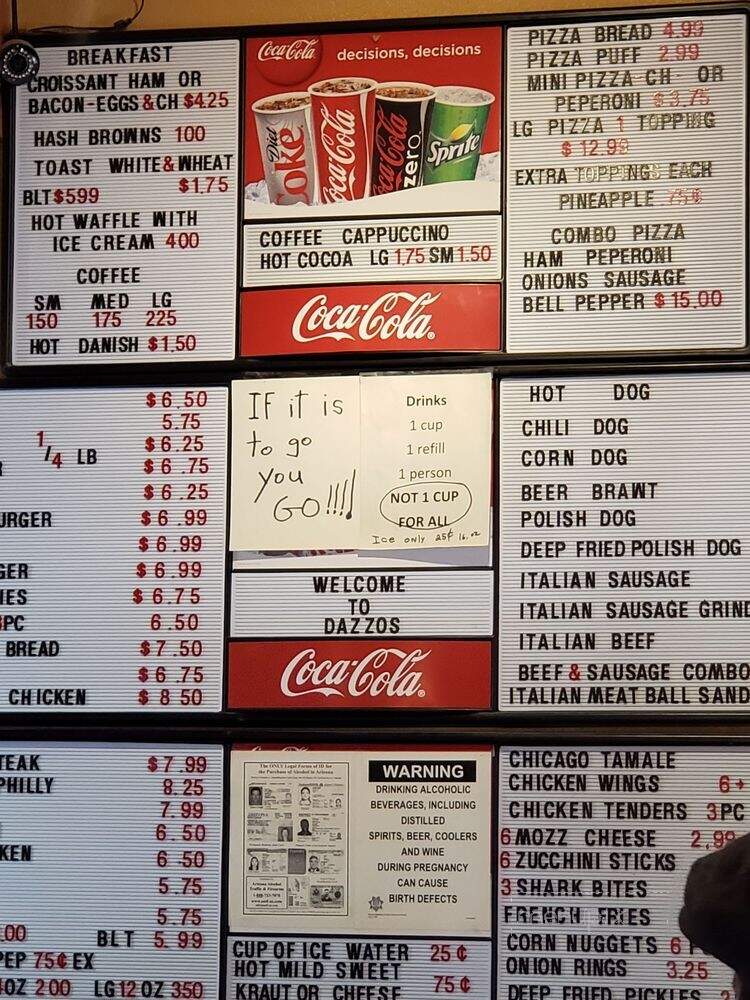 BREAKFAST
CROISSANT HAM OR
BACON-EGGS & CH $4.25
HASH BROWNS 100
TOAST WHITE & WHEAT
$1.75
BLT $599
HOT WAFFLE WITH
ICE CREAM 400
COFFEE
SM MED LG
150 175 225
HOT DANISH $1.50
Coca-Cola
decisions, decisions
Diet Coke
Coca-Cola
Coca-Cola zero
Sprite
COFFEE CAPPUCCINO
HOT COCOA LG 1.75 SM 1.50
Coca-Cola
PIZZA BREAD 4.99
PIZZA PUFF 2.99
MINI PIZZA-CH- OR
PEPERONI $3.75
LG PIZZA 1 TOPPING
$12.99
EXTRA TOPPINGS EACH
PINEAPPLE .75¢
COMBO PIZZA
HAM PEPERONI
ONIONS SAUSAGE
BELL PEPPER $15.00
$6.50
5.75
1/4 LB $6.25
$6.75
$6.25
URGER $6.99
$6.99
GER $6.99
IES $6.75
PC 6.50
BREAD $7.50
$6.75
CHICKEN $8 50
IF it is
to go
you
GO!!!!
Drinks
1 cup
1 refill
1 person
NOT 1 CUP
FOR ALL
Ice only 25¢ 16.oz
WELCOME
TO
DAZZOS
Coca-Cola
HOT DOG
CHILI DOG
CORN DOG
BEER BRAWT
POLISH DOG
DEEP FRIED POLISH DOG
ITALIAN SAUSAGE
ITALIAN SAUSAGE GRIND
ITALIAN BEEF
BEEF & SAUSAGE COMBO
ITALIAN MEAT BALL SAND
TEAK $7.99
PHILLY 8.25
7.99
6.50
KEN 6 50
5.75
5.75
.00 BLT 5.99
PEP 75¢ EX
OZ 2 00 LG 12 OZ 350
The ONLY Legal Forms of ID for
the Purchase of Alcohol in Arizona
WARNING
DRINKING ALCOHOLIC
BEVERAGES, INCLUDING
DISTILLED
SPIRITS, BEER, COOLERS
AND WINE
DURING PREGNANCY
CAN CAUSE
BIRTH DEFECTS
CUP OF ICE WATER 25¢
HOT MILD SWEET
KRAUT OR CHEESE 75¢
CHICAGO TAMALE
CHICKEN WINGS 6+
CHICKEN TENDERS 3PC
6 MOZZ CHEESE 2.99
6 ZUCCHINI STICKS
3 SHARK BITES
FRENCH FRIES
CORN NUGGETS 6
ONION RINGS 3.25
DEEP FRIED PICKLES